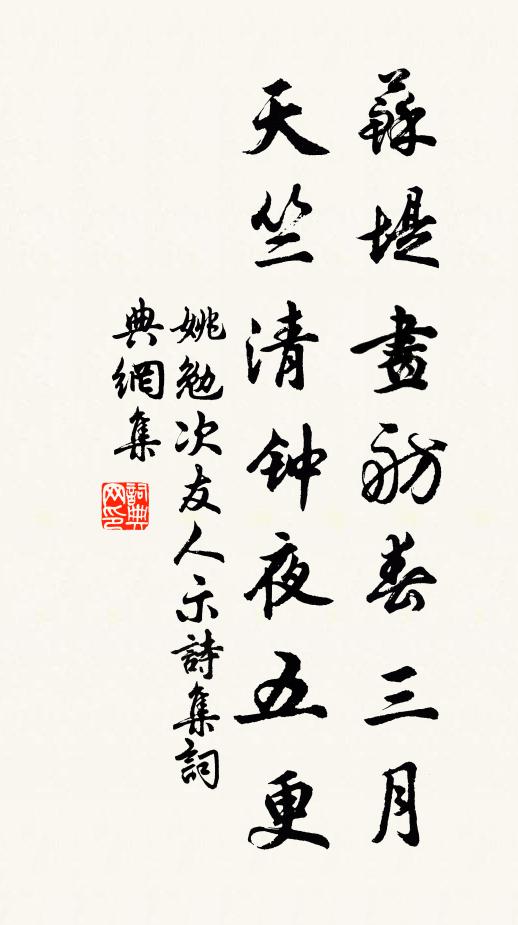 蘇堤畫舫春三月
天竺清钟夜五更
姚勉次友人示詩集詞
典網集
詞典網印